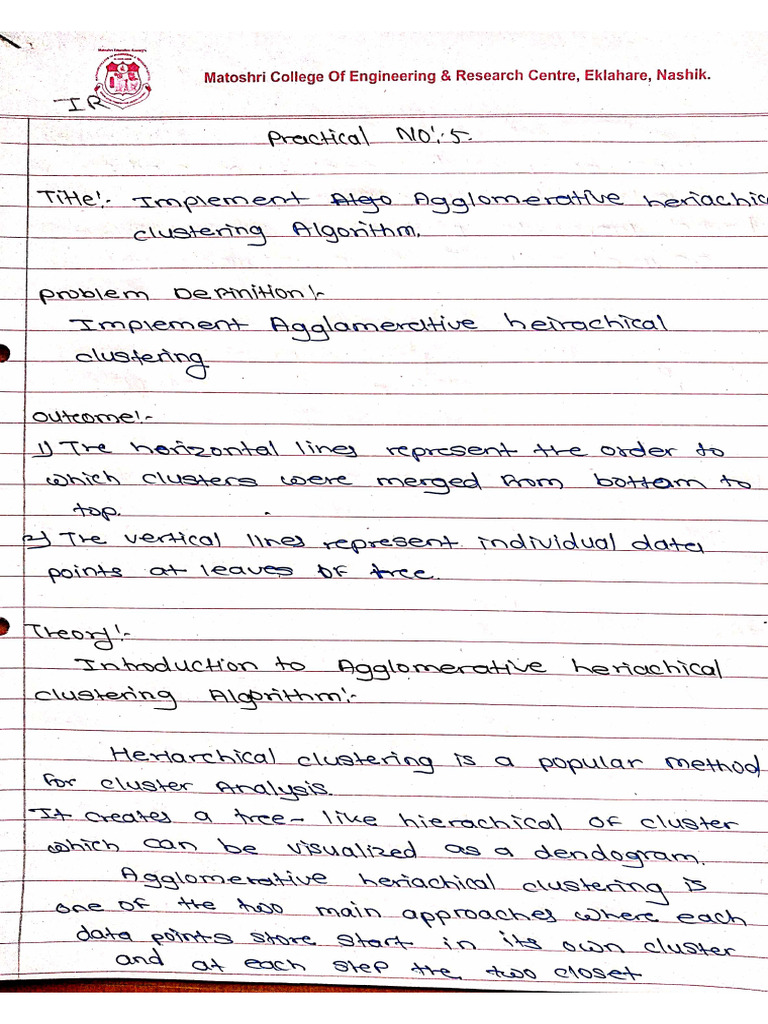 Matoshri Education Society's
Matoshri College Of Engineering & Research Centre, Eklahare, Nashik.
IR
Practical NO:- 5.
Title:- Implement Algo Agglomerative heriachic
clustering Algorithm.
Problem Definition:-
Implement Agglamerative heirachical
clustering
Outcome:-
1) The horizontal lines represent the order to
which clusters were merged from bottom to
top.
2) The vertical lines represent individual data
points at leaves of tree.
Theory:-
Introduction to Agglomerative heriachical
clustering Algorithm:-
Heriarchical clustering is a popular method
for cluster Analysis.
It creates a tree-like hierachical of cluster
which can be visualized as a dendogram.
Agglomerative heriachical clustering is
one of the two main approaches where each
data points store start in its own cluster
and at each step the two closet